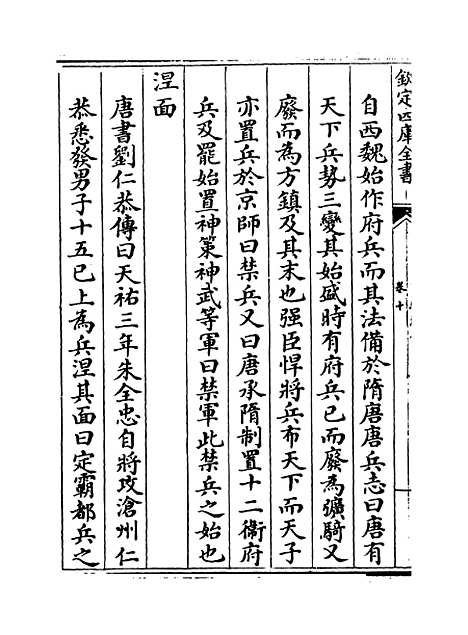 欽定四庫全書
卷十
自西魏始作府兵而其法備於隋唐唐兵志曰唐有
天下兵勢三變其始盛時有府兵已而廢為彍騎又
廢而為方鎮及其末也强臣悍將兵布天下而天子
亦置兵於京師曰禁兵又曰唐承隋制置十二衞府
兵及罷始置神策神武等軍曰禁軍此禁兵之始也
涅面
唐書劉仁恭傳曰天祐三年朱全忠自將攻滄州仁
恭悉發男子十五已上為兵涅其面曰定霸都兵之